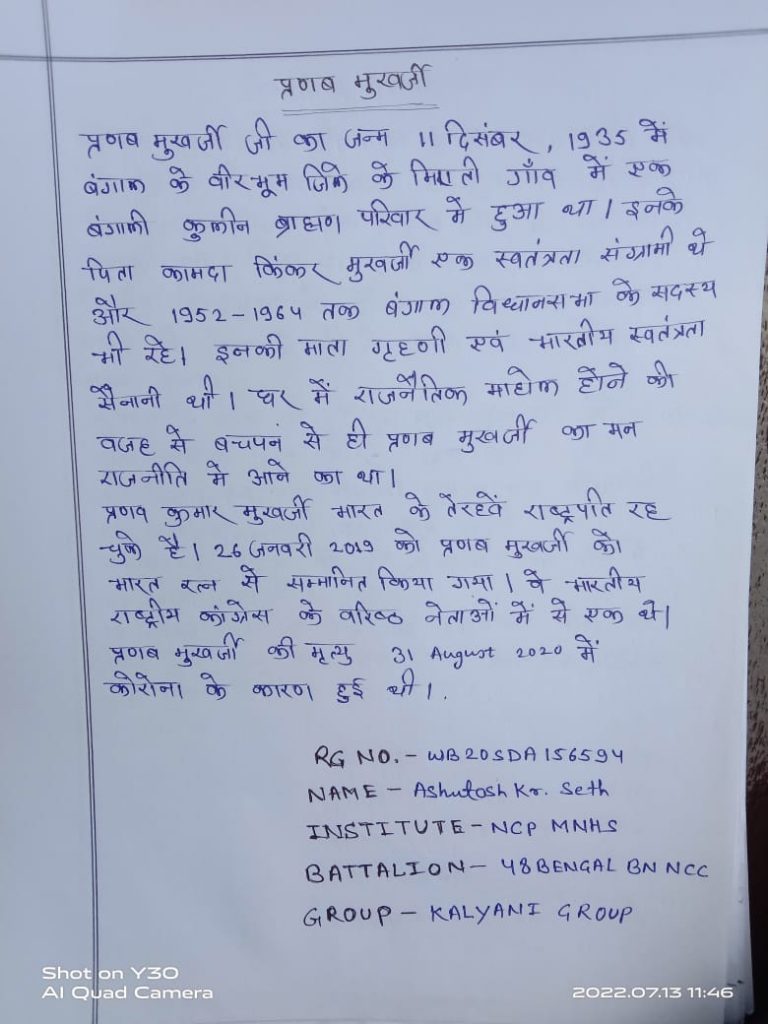 प्रणब मुखर्जी
प्रणब मुखर्जी जी का जन्म 11 दिसंबर, 1935 में
बंगाल के वीरभूम जिले के मिराती गाँव में एक
बंगाली कुलीन ब्राह्मण परिवार में हुआ था। इनके
पिता कामदा किंकर मुखर्जी एक स्वतंत्रता संग्रामी थे
और 1952-1964 तक बंगाल विधानसभा के सदस्य
भी रहे। इनकी माता गृहणी एवं भारतीय स्वतंत्रता
सैनानी थी। घर में राजनैतिक माहोल होने की
वजह से बचपन से ही प्रणब मुखर्जी का मन
राजनीति में आने का था।
प्रणव कुमार मुखर्जी भारत के तेरहवें राष्ट्रपति रह
चुके है। 26 जनवरी 2019 को प्रणब मुखर्जी को
भारत रत्न से सम्मानित किया गया। वे भारतीय
राष्ट्रीय कांग्रेस के वरिष्ठ नेताओं में से एक थे।
प्रणब मुखर्जी की मृत्यु 31 August 2020 में
कोरोना के कारण हुई थी।.
RG NO.- WB20SDA156594
NAME - Ashutosh Kr. Seth
INSTITUTE - NCP MNHS
BATTALION - 48 BENGAL BN NCC
GROUP - KALYANI GROUP
Shot on Y30
AI Quad Camera
2022.07.13 11:46